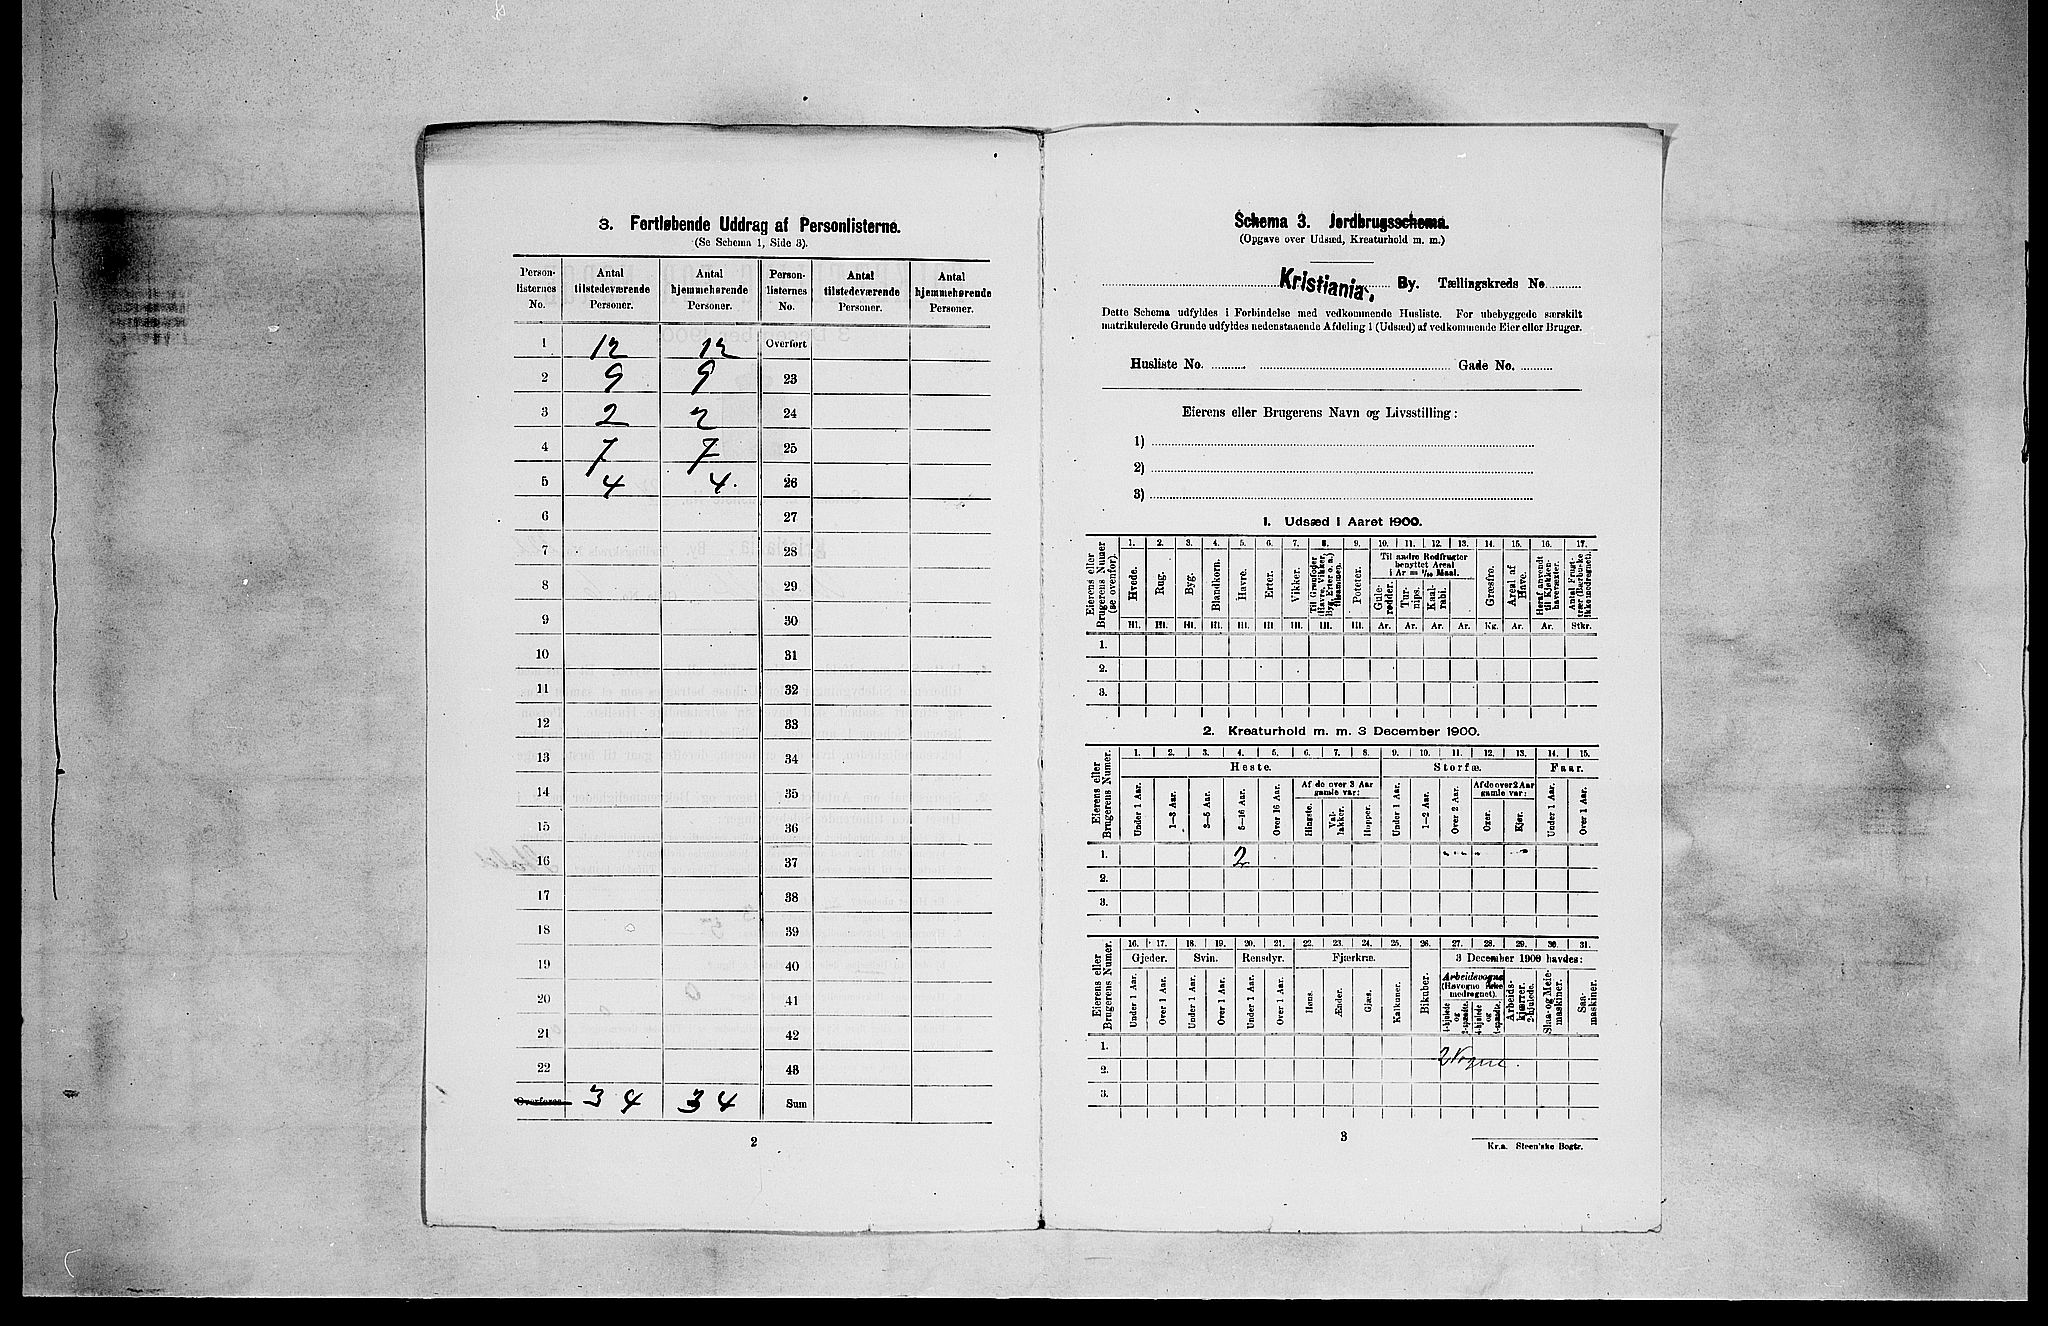 3. Fortløbende Uddrag af Personlisterne.
(Se Schema 1, Side 3).
Person-listernes No. | Antal tilstedeværende Personer. | Antal hjemmehørende Personer. | Person-listernes No. | Antal tilstedeværende Personer. | Antal hjemmehørende Personer.
1 12 12 Overført
2 9 9 23
3 2 2 24
4 7 7 25
5 4 4. 26
6 27
7 28
8 29
9 30
10 31
11 32
12 33
13 34
14 35
15 36
16 37
17 38
18 39
19 40
20 41
21 42
22 43
Overføres 34 34 Sum
2
Schema 3. Jordbrugsschema.
(Opgave over Udsæd, Kreaturhold m. m.)
Kristiania, By. Tællingskreds No
Dette Schema udfyldes i Forbindelse med vedkommende Husliste. For ubebyggede særskilt
matrikulerede Grunde udfyldes nedenstaaende Afdeling 1 (Udsæd) af vedkommende Eier eller Bruger.
Husliste No. Gade No.
Eierens eller Brugerens Navn og Livsstilling:
1)
2)
3)
1. Udsæd i Aaret 1900.
Eierens eller Brugerens Numer (se ovenfor).
1. 2. 3. 4. 5. 6. 7. 8. 9. 10. 11. 12. 13. 14. 15. 16. 17.
Til andre Rodfrugter benyttet Areal i Ar = 1/10 Maal.
Hvede. Rug. Byg. Blandkorn. Havre. Erter. Vikker. Til Grønfoder (Havre, Vikker, Byg, Erter o. a.) tilsammen. Poteter. Gule-rødder. Tur-nips. Kaal-rabi. Græsfrø. Areal af Have. Heraf anvendt til Kjøkken-havevæxter. Antal Frugt-trær (Bærbuske ikke medregnet).
Hl. Hl. Hl. Hl. Hl. Hl. Hl. Hl. Hl. Ar. Ar. Ar. Ar. Kg. Ar. Ar. Stkr.
1.
2.
3.
2. Kreaturhold m. m. 3 December 1900.
Eierens eller Brugerens Numer.
1. 2. 3. 4. 5. 6. 7. 8. 9. 10. 11. 12. 13. 14. 15.
Heste. Storfæ. Faar.
Af de over 3 Aar gamle var: Af de over 2 Aar gamle var:
Under 1 Aar. 1–3 Aar. 3–5 Aar. 5–16 Aar. Over 16 Aar. Hingste. Val-lakker. Hopper. Under 1 Aar. 1–2 Aar. Over 2 Aar. Oxer. Kjør. Under 1 Aar. Over 1 Aar.
1. 2
2.
3.
Eierens eller Brugerens Numer.
16. 17. 18. 19. 20. 21. 22. 23. 24. 25. 26. 27. 28. 29. 30. 31.
Gjeder. Svin. Rensdyr. Fjærkræ. 3 December 1900 havdes:
Arbeidsvogne (Høvogne ikke medregnet).
Under 1 Aar. Over 1 Aar. Under 1 Aar. Over 1 Aar. Under 1 Aar. Over 1 Aar. Høns. Ænder. Gjæs. Kalkuner. Bikuber. 4-hjulede og 2-spændte. 4-hjulede og 1-spændte. Arbeids-kjærrer, 2-hjulede. Slaa- og Meie-maskiner. Saa-maskiner.
1.
2 Vogne
2.
3.
3
Kr.a. Steen'ske Bogtr.